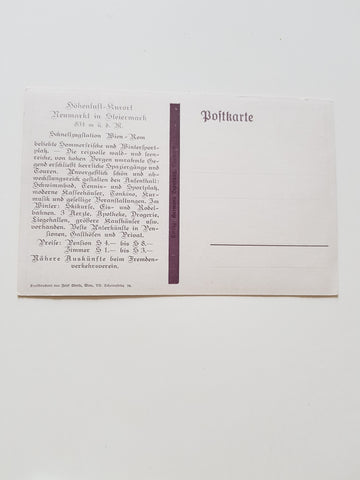 Höhenluft-Kurort
Neumarkt in Steiermark
834 m ü. d. M.
Schnellzugstation Wien-Rom
beliebte Sommerfrische und Wintersport-
platz. — Die reizvolle wald- und seen-
reiche, von hohen Bergen umrahmte Ge-
gend erschließt herrliche Spaziergänge und
Touren. Unvergeßlich schön und ab-
wechslungsreich gestalten den Aufenthalt:
Schwimmbad, Tennis- und Sportplatz,
moderne Kaffeehäuser, Tonkino, Kur-
musik und gesellige Veranstaltungen. Im
Winter: Skikurse, Eis- und Rodel-
bahnen. 3 Aerzte, Apotheke, Drogerie,
Liegehallen, größere Kaufhäuser usw.
vorhanden. Beste Unterkünfte in Pen-
sionen, Gasthöfen und Privat.
Preise: Pension S 4.— bis S 8.—
Zimmer S 1.— bis S 3.—
Nähere Auskünfte beim Fremden-
verkehrsverein.
Postkarte